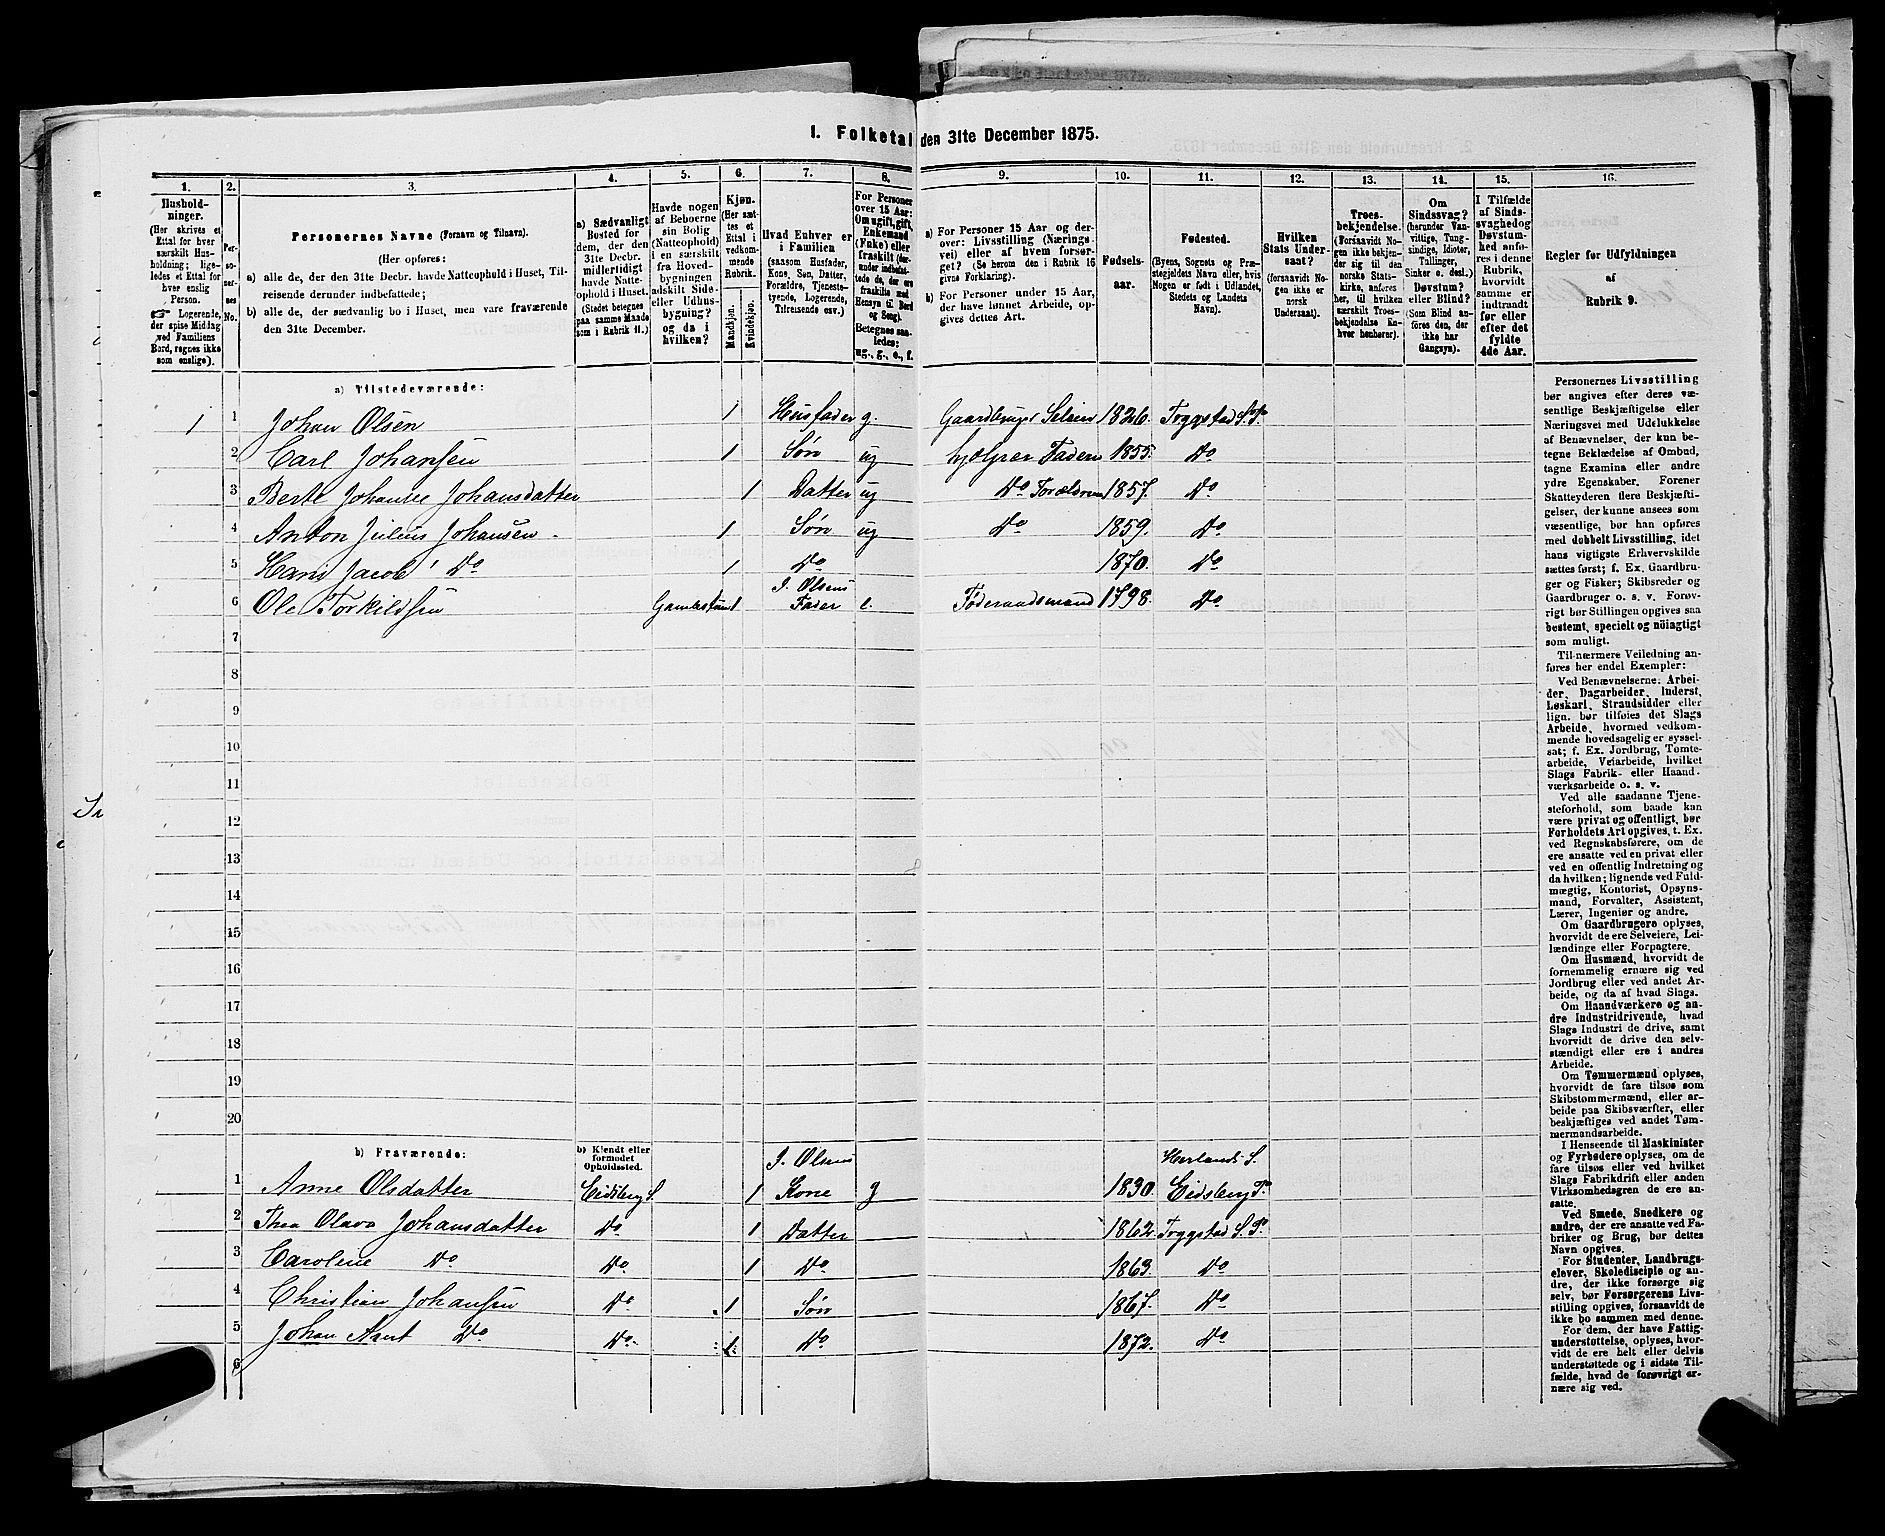 1. Folketal den 31te December 1875.
1. 2. 3. 4. 5. 6. 7. 8. 9. 10. 11. 12. 13. 14. 15. 16.
Husholdninger.
(Her skrives et Ettal for hver særskilt Husholdning; ligeledes et Ettal for hver enslig Person.
Logerende, der spise Middag ved Familiens Bord, regnes ikke som enslige).
Personernes No.
Personernes Navne (Fornavn og Tilnavn).
(Her opføres:
a) alle de, der den 31te Decbr. havde Natteophold i Huset, Tilreisende derunder indbefattede;
b) alle de, der sædvanlig bo i Huset, men vare fraværende den 31te December.
a) Sædvanligt Bosted for dem, der den 31te Decbr. midlertidigt havde Natteophold i Huset. (Stedet betegnes paa samme Maade som i Rubrik 11.)
Havde nogen af Beboerne sin Bolig (Natteophold) i en særskilt fra Hovedbygningen adskilt Side- eller Udhusbygning? og da i hvilken?
Kjøn. (Her sættes et Ettal i vedkommende Rubrik.
Mandkjøn. Kvindekjøn.
Hvad Enhver er i Familien
(saasom Husfader, Kone, Søn, Datter, Forældre, Tjenestetyende, Logerende, Tilreisende osv.)
For Personer over 15 Aar: Om ugift, gift, Enkemand (Enke) eller fraskilt
Betegnes saaledes: ug., g., e., f.
a) For Personer 15 Aar og derover: Livsstilling (Næringsvei) eller af hvem forsørget? (Se herom den i Rubrik 16 givne Forklaring).
b) For Personer under 15 Aar, der have lønnet Arbeide, opgives dettes Art.
Fødselsaar.
Fødested.
(Byens, Sognets og Præstegjeldets Navn eller, hvis Nogen er født i Udlandet, Stedets og Landets Navn).
Hvilken Stats Undersaat?
(forsaavidt Nogen ikke er norsk Undersaat).
Troesbekjendelse.
(Forsaavidt Nogen ikke bekjender sig til den norske Statskirke, anføres her, til hvilken særskilt Troesbekjendelse Enhver henhører).
Om Sindssvag? (herunder Vanvittige, Tungsindige, Idioter, Tullinger, Sinker o. desl.) Døvstum? eller Blind? (Som Blind anføres den, der ikke har Gangsyn).
I Tilfælde af Sindssvaghed og Døvstumhed anføres i denne Rubrik, hvorvidt samme er indtraadt før eller efter det fyldte 4de Aar.
Regler før Udfyldningen af Rubrik 9.
a) Tilstedeværende:
1 1 Johan Olsen 1 Husfader g. Gaardbruger Seleier 1826. Trygstad S. P.
2 Carl Johansen 1 Søn ug hjelper Faderen 1855. Do
3 Berte Johanse Johansdatter 1 Datter ug Do Forældrene 1857. Do
4 Anton Julius Johansen 1 Søn ug Do 1859. Do
5 Hans Jacob Do 1 Do 1870. Do
6 Ole Torkildsen 1 J. Olsens Fader e. Føderaadsmand 1798. Do
7
8
9
10
11
12
13
14
15
16
17
18
19
20
b) Fraværende: b) Kjendt eller formodet Opholdssted.
1 Anne Olsdatter Eidsberg S. 1 J. Olsens Kone g 1830. Herlands S. Eidsberg P.
2 Thea Olava Johansdatter Do 1 Datter 1862. Trygstad S. P.
3 Carolene Do Do 1 Do 1863. Do
4 Christian Johansen Do 1 Søn 1867. Do
5 Johan Arnt Do Do 1 Do 1872. Do
6
Personernes Livsstilling
bør angives efter deres væsentlige
Beskjæftigelse eller
Næringsvei med Udelukkelse
af Benævnelser, der kun betegne
Beklædelse af Ombud,
tagne Examina eller andre
ydre Egenskaber. Forener
Skatteyderen flere Beskjæftigelser,
der kunne ansees som
væsentlige, bør han opføres
med dobbelt Livsstilling, idet
hans vigtigste Erhvervskilde
sættes først; f. Ex. Gaardbruger
og Fisker; Skibsreder og
Gaardbruger o. s. v. Forøvrigt
bør Stillingen opgives saa
bestemt, specielt og nöiagtigt
som muligt.
Til nærmere Veiledning anføres
her endel Exempler:
Ved Benævnelserne: Arbeider,
Dagarbeider, Inderst,
Løskarl, Strandsidder eller
lign. bør tilføies det Slags
Arbeide, hvormed vedkommende
hovedsagelig er sysselsat;
f. Ex. Jordbrug, Tomtearbeide,
Veiarbeide, hvilket
Slags Fabrik- eller Haandværksarbeide
o. s. v.
Ved alle saadanne Tjenesteforhold,
som baade kan
være privat og offentligt, bør
Forholdets Art opgives, t. Ex.
ved Regnskabsførere, om de
ere ansatte ved en privat eller
ved en offentlig Indretning og
da hvilken; lignende ved Fuldmægtig,
Kontorist, Opsynsmand,
Forvalter, Assistent,
Lærer, Ingeniør og andre.
Om Gaardbrugere oplyses,
hvorvidt de ere Selveiere, Leilændinge
eller Forpagtere.
Om Husmænd, hvorvidt de
fornemmelig ernære sig ved
Jordbrug eller ved andet Arbeide,
og da af hvad Slags.
Om Haandværkere og andre
Industridrivende, hvad
Slags Industri de drive, samt
hvorvidt de drive den selvstændigt
eller ere i andres
Arbeide.
Om Tømmermænd oplyses,
hvorvidt de fare tilsøs som
Skibstømmermænd, eller arbeide
paa Skibsværfter, eller
beskjæftiges ved andet Tømmermandsarbeide.
I Henseende til Maskinister
og Fyrbødere oplyses, om de
fare tilsøs eller ved hvilket
Slags Fabrikdrift eller anden
Virksomhedsgren de ere ansatte.
Ved Smede, Snedkere og
andre, der ere ansatte ved Fabriker
og Brug, bør dettes
Navn opgives.
For Studenter, Landbrugselever,
Skoledisciple og andre,
der ikke forsørge sig
selv, bør Forsørgerens Livsstilling
opgives, forsaavidt de
ikke bo sammen med denne.
For dem, der have Fattigunderstøttelse,
oplyses, hvorvidt
de ere helt eller delvis
understøttede og i sidste Tilfælde,
hvad de forøvrigt ernære
sig ved.